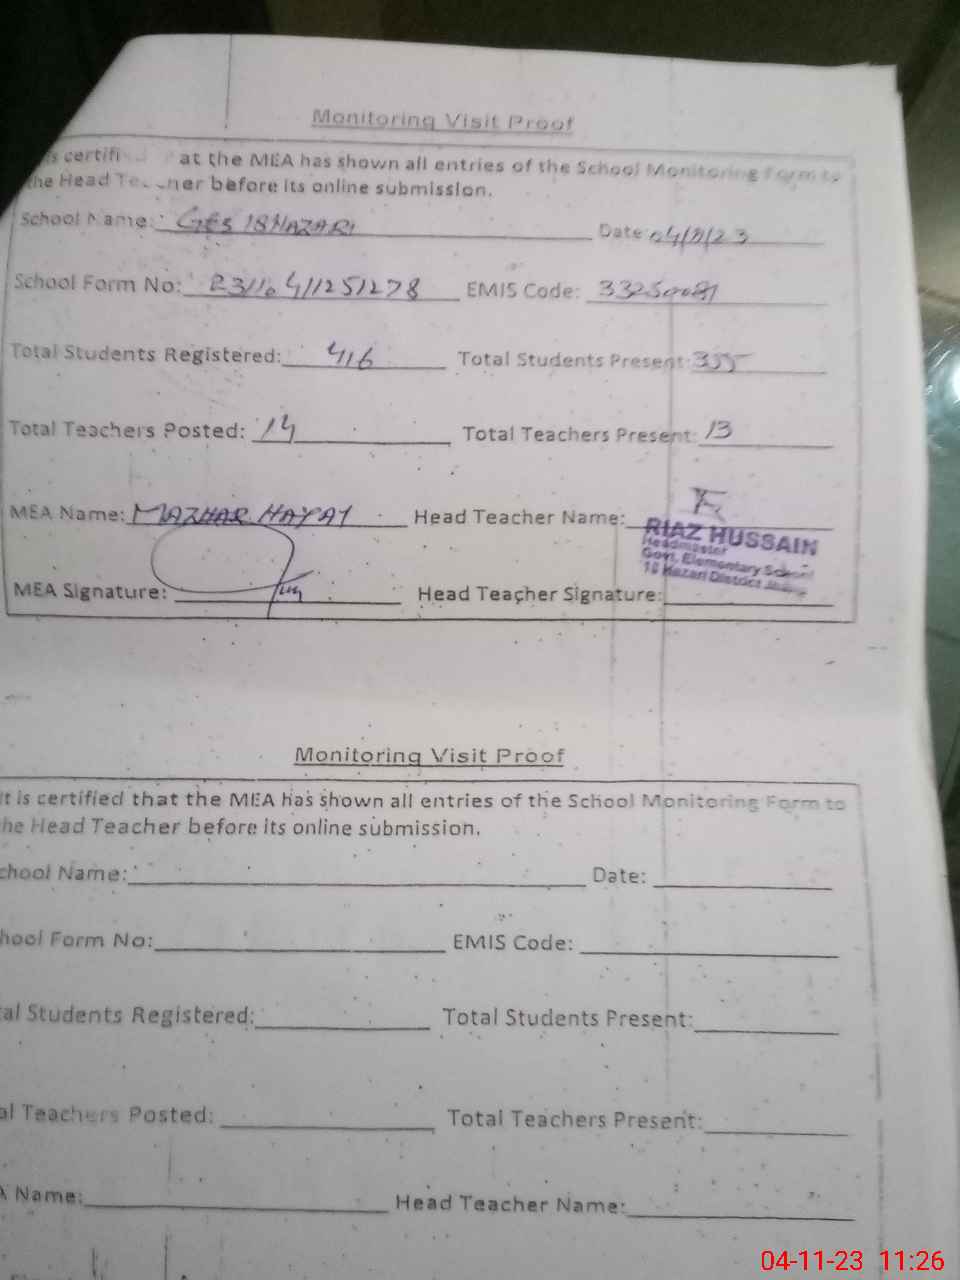 Monitoring Visit Proof
is certifi at the MEA has shown all entries of the School Monitoring Form to
the Head Teacher before its online submission.
School Name: GES 18 HAZARI Date:
School Form No: EMIS Code:
Total Students Registered: 416 Total Students Present: 355
Total Teachers Posted: 14 Total Teachers Present: 13
MEA Name: MAZHAR HAYAT Head Teacher Name:
RIAZ HUSSAIN
Headmaster
Govt. Elementary School
18 Hazari District
MEA Signature: Head Teacher Signature:
Monitoring Visit Proof
It is certified that the MEA has shown all entries of the School Monitoring Form to
he Head Teacher before its online submission.
chool Name: Date:
hool Form No: EMIS Code:
tal Students Registered: Total Students Present:
al Teachers Posted: Total Teachers Present:
A Name: Head Teacher Name:
04-11-23 11:26